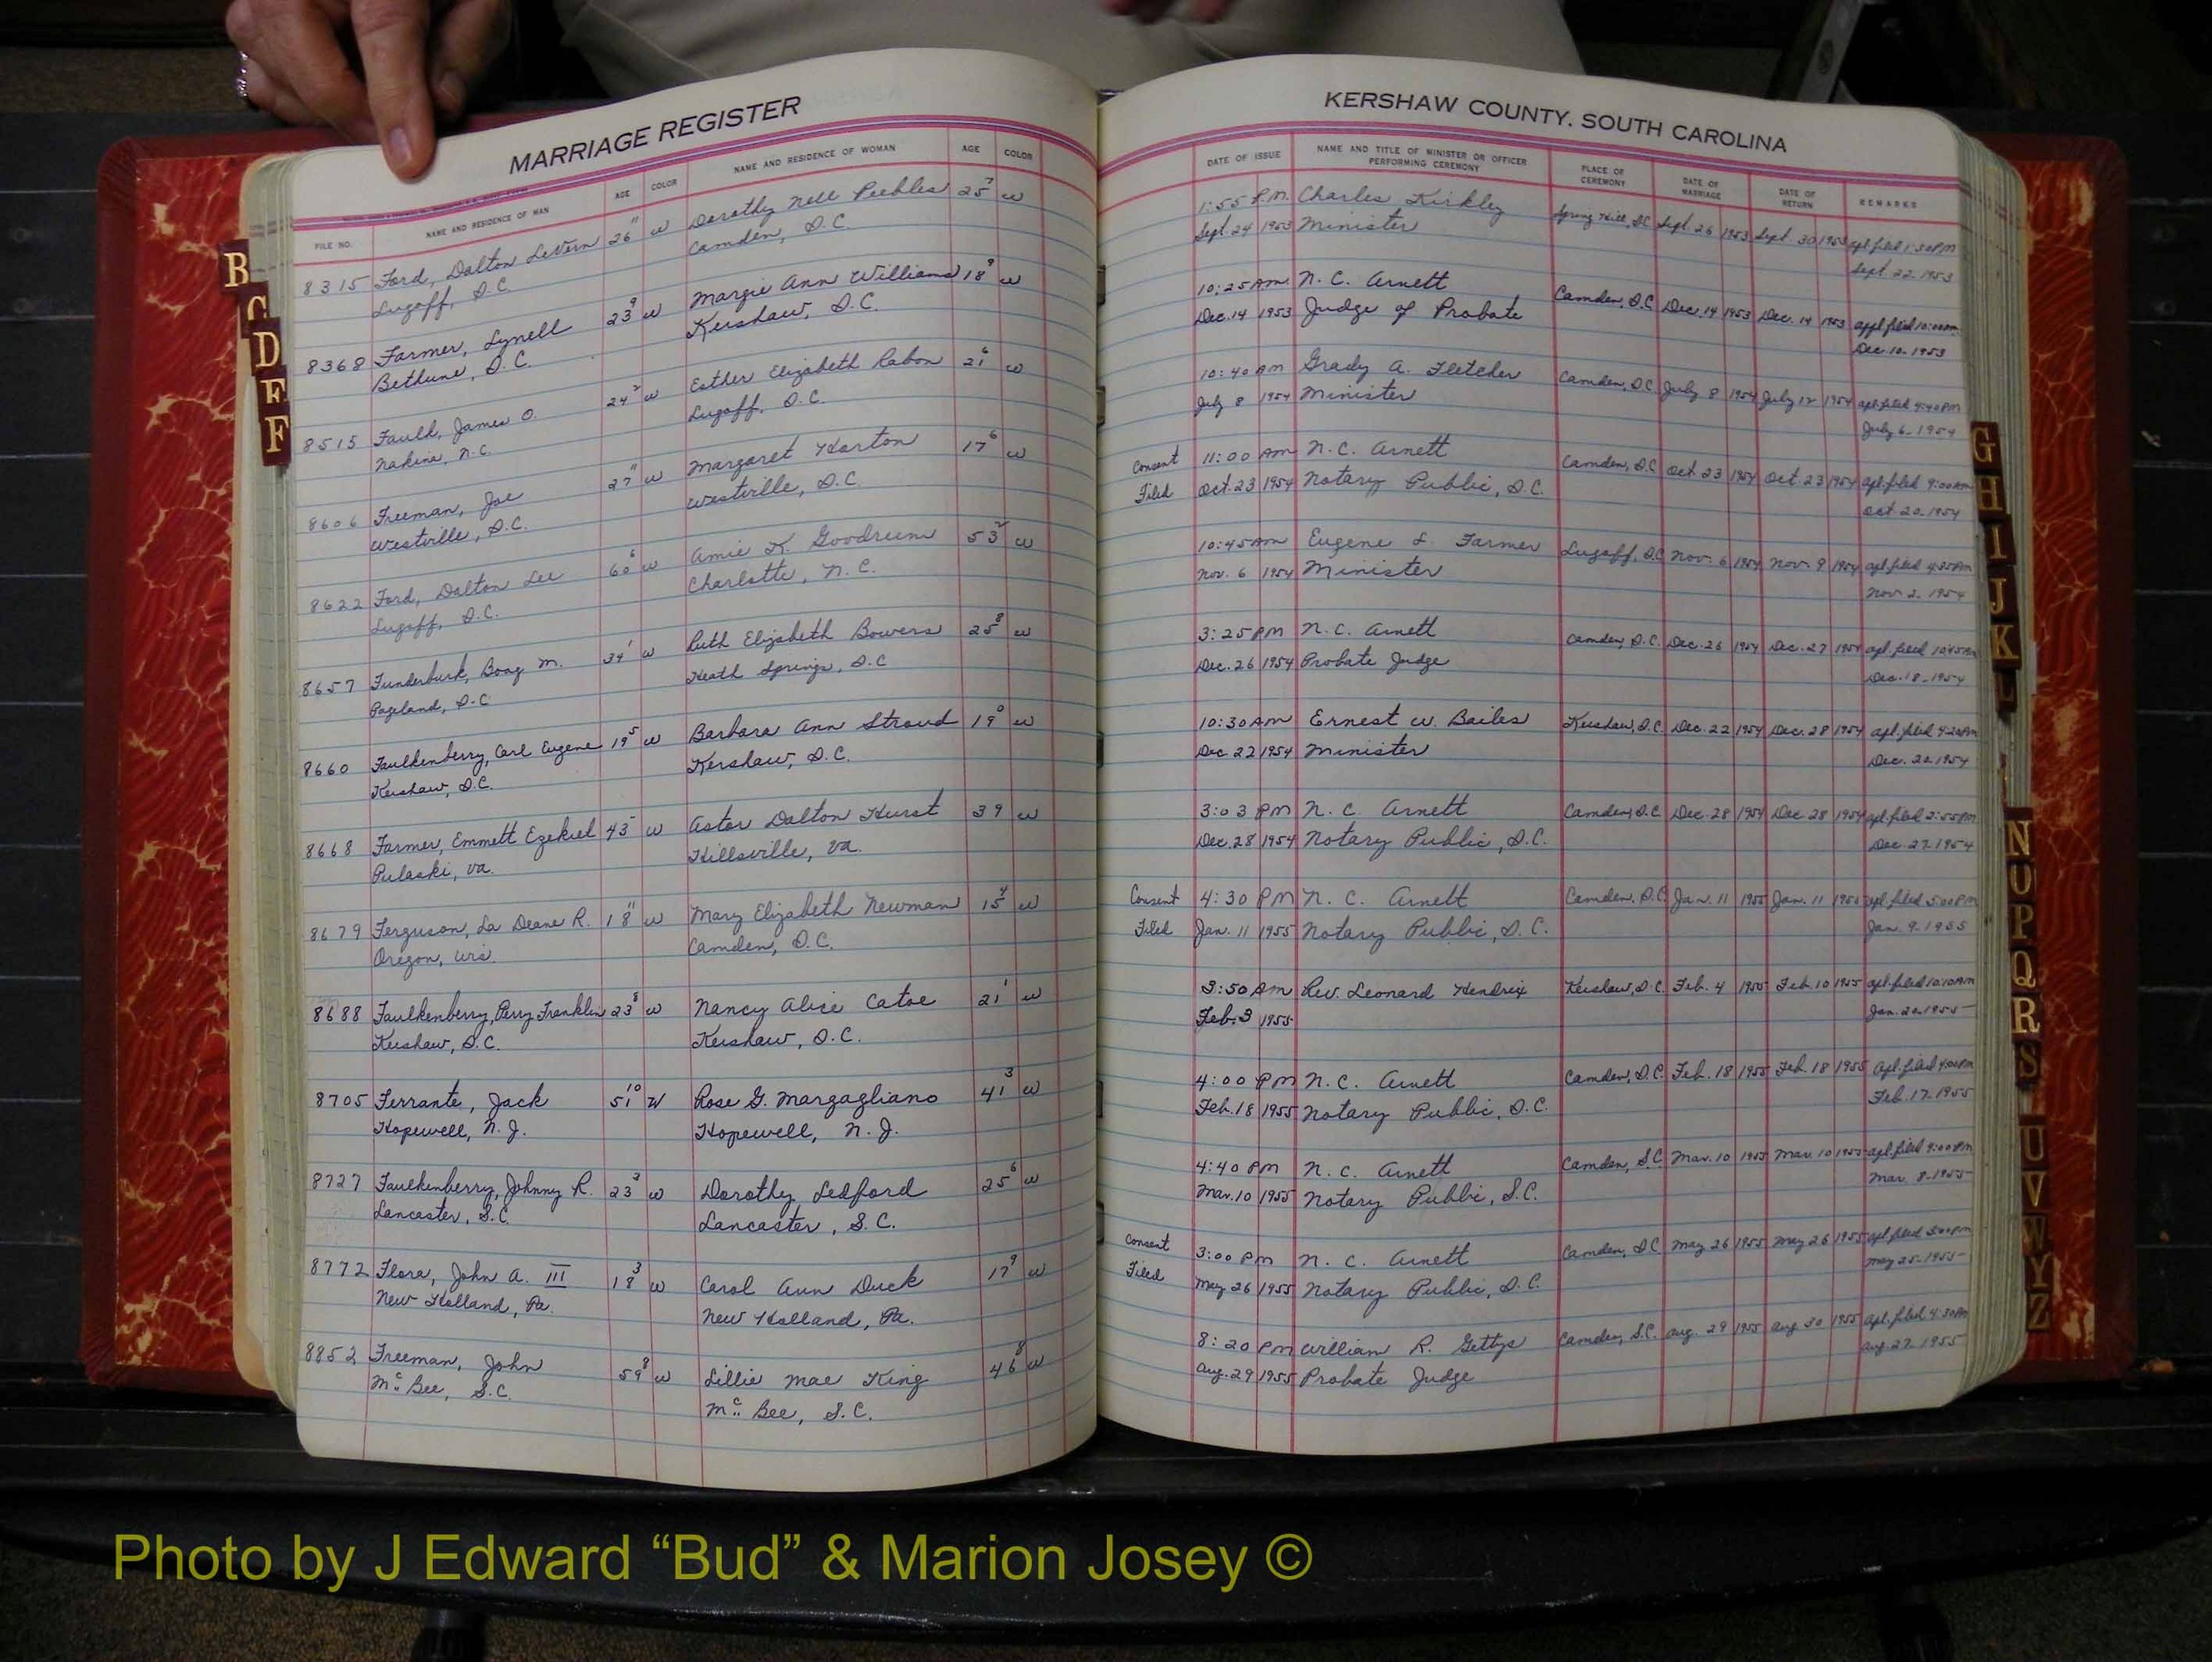 MARRIAGE REGISTER
FILE NO. NAME AND RESIDENCE OF MAN AGE COLOR NAME AND RESIDENCE OF WOMAN AGE COLOR
8315 Ford, Dalton LeVern 26 11 W Dorothy Nell Peebles 25 7 W
Lugoff, S.C. Camden, S.C.
8368 Farmer, Lynell 23 9 W Margie Ann Williams 18 9 W
Bethune, S.C. Kershaw, S.C.
8515 Faulk, James O. 24 2 W Esther Elizabeth Rabon 21 6 W
Nakina, N.C. Lugoff, S.C.
8606 Freeman, Joe 27 11 W Margaret Horton 17 6 W
Westville, S.C. Westville, S.C.
8622 Ford, Dalton Lee 60 6 W Amie K. Goodrum 53 2 W
Lugoff, S.C. Charlotte, N.C.
8657 Funderburk, Boag M. 34 1 W Ruth Elizabeth Bowers 25 8 W
Pageland, S.C. Heath Springs, S.C.
8660 Faulkenberry, Carl Eugene 19 5 W Barbara Ann Stroud 19 0 W
Kershaw, S.C. Kershaw, S.C.
8668 Farmer, Emmett Ezekiel 43 W Astor Dalton Hurst 39 W
Pulaski, Va. Hillsville, Va.
8679 Ferguson, La Deane R. 18 11 W Mary Elizabeth Newman 15 4 W
Oregon, Wis. Camden, S.C.
8688 Faulkenberry, Perry Franklin 23 8 W Nancy Alice Catoe 21 1 W
Kershaw, S.C. Kershaw, S.C.
8705 Ferrante, Jack 51 10 W Rose G. Margagliano 41 3 W
Hopewell, N.J. Hopewell, N.J.
8727 Faulkenberry, Johnny R. 23 3 W Dorothy Ledford 25 6 W
Lancaster, S.C. Lancaster, S.C.
8772 Flora, John A. III 18 3 W Carol Ann Duck 17 9 W
New Holland, Pa. New Holland, Pa.
8852 Freeman, John 59 8 W Lillie Mae King 46 8 W
Mc Bee, S.C. Mc Bee, S.C.
KERSHAW COUNTY, SOUTH CAROLINA
DATE OF ISSUE NAME AND TITLE OF MINISTER OR OFFICER PERFORMING CEREMONY PLACE OF CEREMONY DATE OF MARRIAGE DATE OF RETURN REMARKS
1:55 P.M. Charles Kirkley Spring Hill, S.C. Sept. 26 1953 Sept. 30 1953 apl. filed 1:30 PM
Sept. 24 1953 Minister Sept. 22, 1953
10:25 AM N. C. Arnett Camden, S.C. Dec. 14 1953 Dec. 14 1953 appl. filed 10:00 AM
Dec. 14 1953 Judge of Probate Dec. 10, 1953
10:40 AM Grady A. Fletcher Camden, S.C. July 8 1954 July 12 1954 apl. filed 4:40 PM
July 8 1954 Minister July 6, 1954
Consent 11:00 AM N. C. Arnett Camden, S.C. Oct. 23 1954 Oct. 23 1954 apl. filed 9:00 AM
Filed Oct. 23 1954 Notary Public, S.C. Oct. 20, 1954
10:45 AM Eugene L. Farmer Lugoff, S.C. Nov. 6 1954 Nov. 9 1954 apl. filed
Nov. 6 1954 Minister Nov. 2, 1954
3:25 PM N. C. Arnett Camden, S.C. Dec. 26 1954 Dec. 27 1954 apl. filed 10:45 AM
Dec. 26 1954 Probate Judge Dec. 18, 1954
10:30 AM Ernest W. Bailes Kershaw, S.C. Dec. 22 1954 Dec. 28 1954 apl. filed 4:20 PM
Dec. 22 1954 Minister Dec. 20, 1954
3:03 PM N. C. Arnett Camden, S.C. Dec. 28 1954 Dec. 28 1954 apl. filed 2:55 PM
Dec. 28 1954 Notary Public, S.C. Dec. 27, 1954
Consent 4:30 PM N. C. Arnett Camden, S.C. Jan. 11 1955 Jan. 11 1955 apl. filed 5:00 PM
Filed Jan. 11 1955 Notary Public, S.C. Jan. 9, 1955
3:50 AM Rev. Leonard Hendrix Kershaw, S.C. Feb. 4 1955 Feb. 10 1955 apl. filed 10:10 AM
Feb. 3 1955 Jan. 20, 1955
4:00 PM N. C. Arnett Camden, S.C. Feb. 18 1955 Feb. 18 1955 Apl. filed 4:00 PM
Feb. 18 1955 Notary Public, S.C. Feb. 17, 1955
4:40 PM N. C. Arnett Camden, S.C. Mar. 10 1955 Mar. 10 1955 apl. filed 4:00 PM
Mar. 10 1955 Notary Public, S.C. Mar. 8, 1955
Consent 3:00 PM N. C. Arnett Camden, S.C. May 26 1955 May 26 1955 apl. filed 3:00 PM
Filed May 26 1955 Notary Public, S.C. May 25, 1955
8:20 PM William R. Gettys Camden, S.C. Aug. 29 1955 Aug 30 1955 apl. filed 4:30 PM
Aug. 29 1955 Probate Judge Aug. 27, 1955
B
C
D
E
F
G
H
I
J
K
L
N
O
P
Q
R
S
U
V
W
Y
Z
Photo by J Edward “Bud” & Marion Josey ©